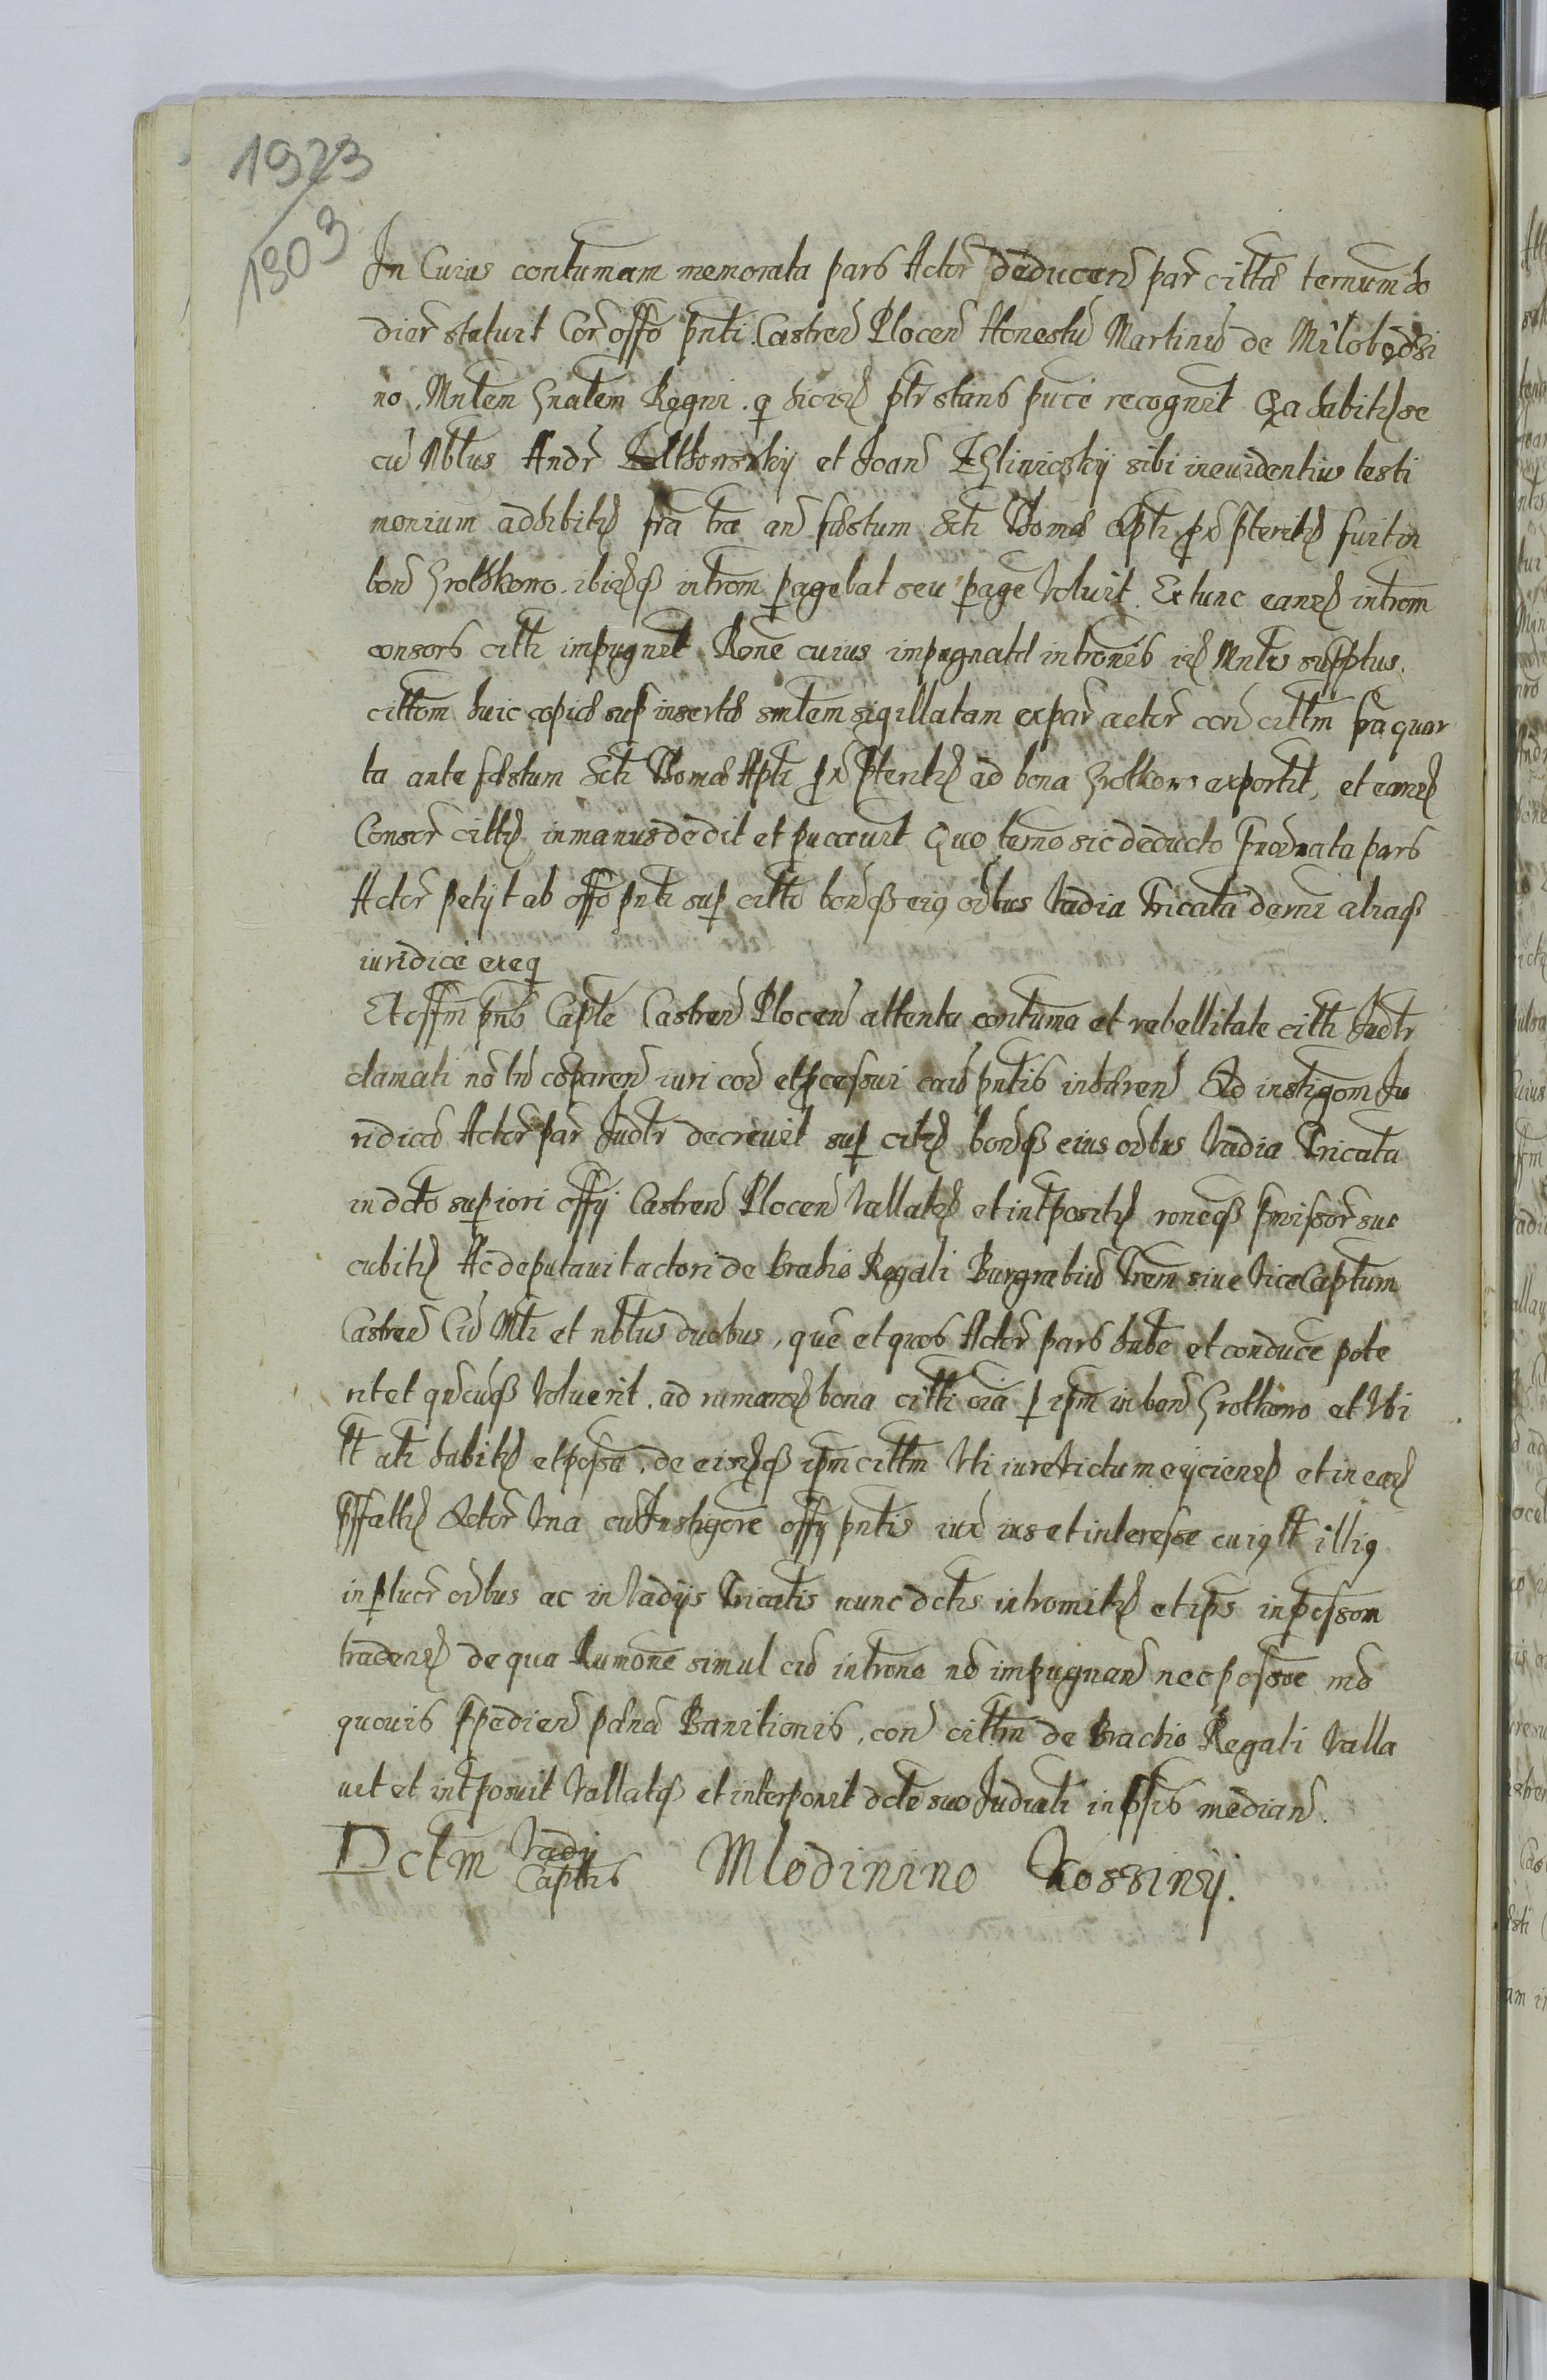 1923
1803
In Cuius contumam memorata pars Actor deducen par cittā ternum ho
dier statuit Cor offo pnti Castren Plocen Honestū Martinū de Milobędzi
no. Mntem Gnalem Regni. q ibidem ptr stans puce recognit Qa habitis se
cū Nbtus Andr et Joan Glinicskij sibi in euidentius testi
monium adhibitis fra tra an festum Scti Thomæ Apti prox pteritis fuit in
bon Srotkowo. ibidemq introm pagebat seu page voluit. Ex tunc eandem introm
consors citti impugnit Rone cuius impugnatæ intronis idem Mntis supptus.
cittom huic copiæ sup insertæ smtem sigillatam ex par actor con cittm fra quar
ta ante festum Scti Thomæ Apti prox pteritis ad bona Srotkow exportit, et eandem
Consor cittis in manus dedit et puccuit Quo terno sic deducto pnoiata pars
Actor petijt ab offo pnti sup citto bonisq eiq oibus Vadia Tricata demi aliaq
iuridice exeq
Et offm pns Capte Castren Plocen attenta contuma et rebellitate citti Judtr
clamati nō tn cōparen iuri con et pcessui caus pntis inhæren Ad instigom Ju
ridicā Actor par Judtr decreuit sup citis bonisq eius oibus Vadia Tricata
in dcto supiori offij Castren Plocen Vallatis et intpositis roneq pmissor suc
cubitis Ac deputauit actori de brachio Regali Burgrabiū Trem siue ViceCaptum
Castren Cū Mti et nbtus duobus, que et quos Actor pars habe et conduce pote
rit et qncuq Voluerit. ad rumandem bona citti oia p ipm in bon Srotkowo et Vbi
lt alti habitis et possa, de eisdemq ipm cittm Vti iure Victum eijciendem et in eadem
pffattis Actor Vna cū Instigore offij pntis iux ius et interesse cuiqlt illiq
in plucr oibus ac in Vadijs Tricatis nunc dctis intromitis et ips in possom
tradendem de qua Rumone simul cū introne nō impugnan nec possoe mō
quouis ppedien pœna Banitionis, con cittm de Brachio Regali Valla
uit et intposuit Vallatq et interponit dcte suo Judicti in pssis median.
Dctm Vadij
Captis Mlodinino Kossinij.